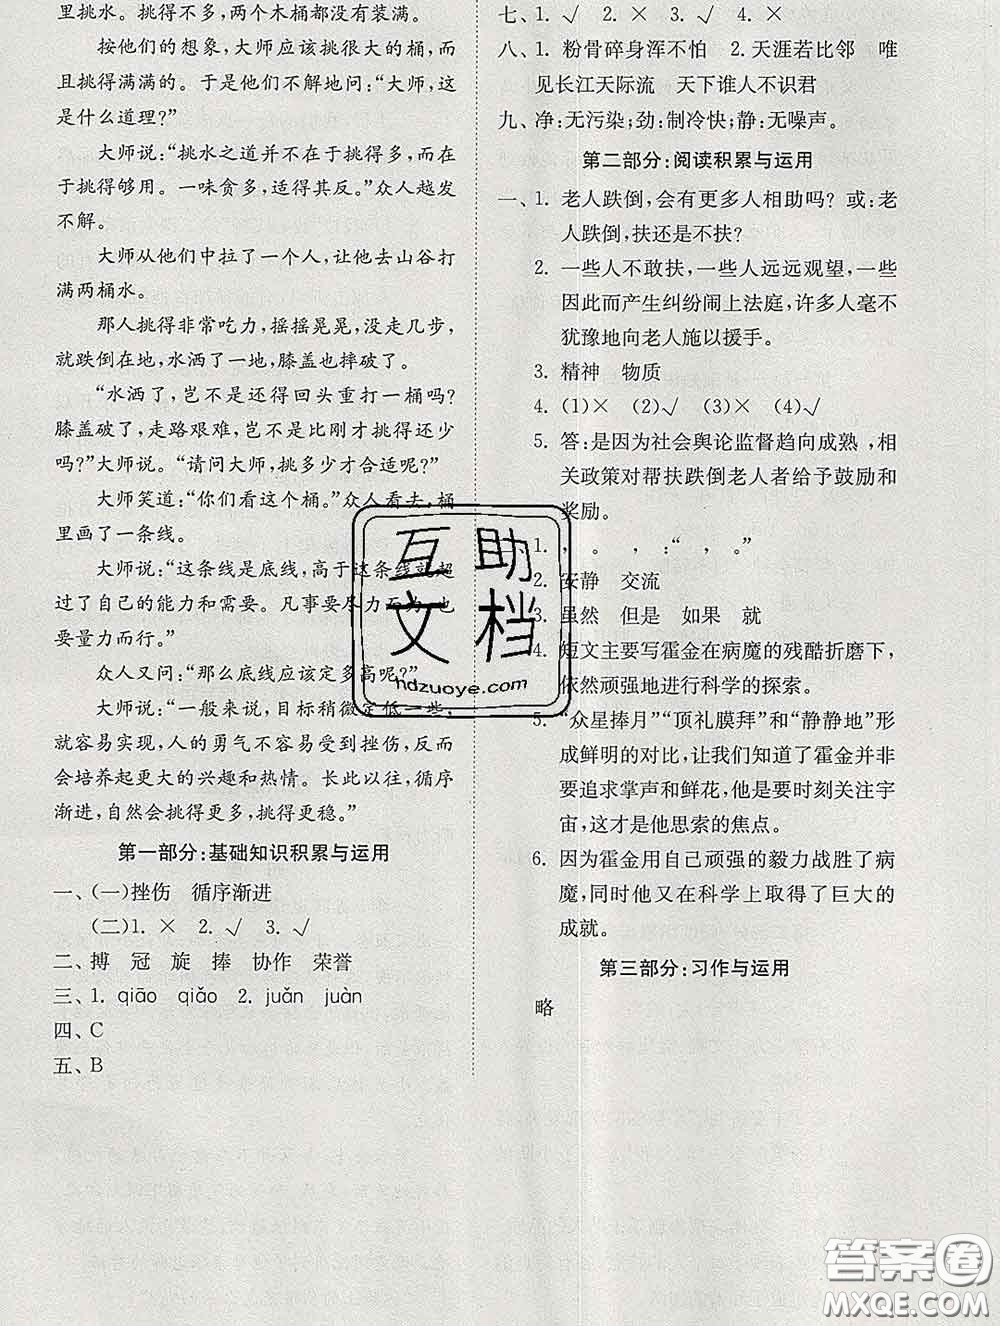 里挑水。挑得不多，两个木桶都没有装满。
按他们的想象，大师应该挑很大的桶，而
且挑得满满的。于是他们不解地问：“大师，这
是什么道理？”
大师说：“挑水之道并不在于挑得多，而在
于挑得够用。一味贪多，适得其反。”众人越发
不解。
大师从他们中拉了一个人，让他去山谷打
满两桶水。
那人挑得非常吃力，摇摇晃晃，没走几步，
就跌倒在地，水洒了一地，膝盖也摔破了。
“水洒了，岂不是还得回头重打一桶吗？
膝盖破了，走路艰难，岂不是比刚才挑得还少
吗？”大师说。“请问大师，挑多少才合适呢？”
大师笑道：“你们看这个桶。”众人看去，桶
里画了一条线。
大师说：“这条线是底线，高于这条线就超
过了自己的能力和需要。凡事要尽力而为，也
要量力而行。”
众人又问：“那么底线应该定多高呢？”
大师说：“一般来说，目标稍微定低一些，
就容易实现，人的勇气不容易受到挫伤，反而
会培养起更大的兴趣和热情。长此以往，循序
渐进，自然会挑得更多，挑得更稳。”
第一部分：基础知识积累与运用
一、(一)挫伤　循序渐进
(二)1. ×　2. √　3. √
二、搏　冠　旋　捧　协作　荣誉
三、1. qiāo　qiǎo　2. juǎn　juàn
四、C
五、B
七、1. √　2. ×　3. √　4. ×
八、1. 粉骨碎身浑不怕　2. 天涯若比邻　唯
见长江天际流　天下谁人不识君
九、净：无污染；劲：制冷快；静：无噪声。
第二部分：阅读积累与运用
一、1. 老人跌倒，会有更多人相助吗？或：老
人跌倒，扶还是不扶？
2. 一些人不敢扶，一些人远远观望，一些
因此而产生纠纷闹上法庭，许多人毫不
犹豫地向老人施以援手。
3. 精神　物质
4. (1)×　(2)√　(3)×　(4)√
5. 答：是因为社会舆论监督趋向成熟，相
关政策对帮扶跌倒老人者给予鼓励和
奖励。
1. ，　。　，　：“　，　。”
2. 安静　交流
3. 虽然　但是　如果　就
4. 短文主要写霍金在病魔的残酷折磨下，
依然顽强地进行科学的探索。
5. “众星捧月”“顶礼膜拜”和“静静地”形
成鲜明的对比，让我们知道了霍金并非
要追求掌声和鲜花，他是要时刻关注宇
宙，这才是他思索的焦点。
6. 因为霍金用自己顽强的毅力战胜了病
魔，同时他又在科学上取得了巨大的
成就。
第三部分：习作与运用
略
互助
文档
hdzuoye.com
答案圈
MXQE.COM